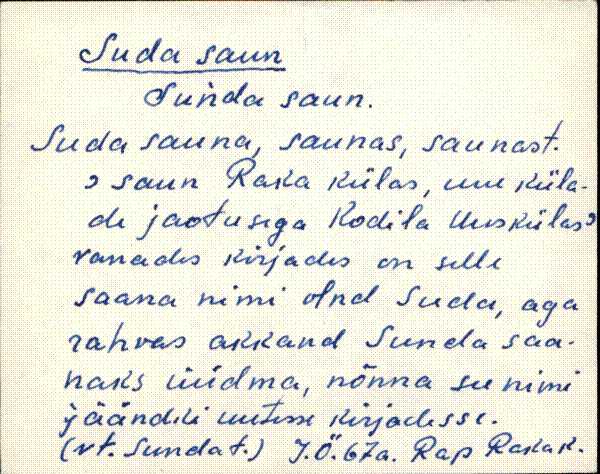 Suda saun
Sunda saun.
Suda sauna, saunas, saunast.
> saun Raka külas, uue küla-
de jaotusega Kodila Uuskülas>
vanades kirjades on selle
saana nimi olnd Suda, aga
rahvas akkand Sunda saa-
naks üüdma, nõnna see nimi
jäändki uutesse kirjadesse.
(vt. Sundat.) J.Ö. 67a. Rap Raka k.